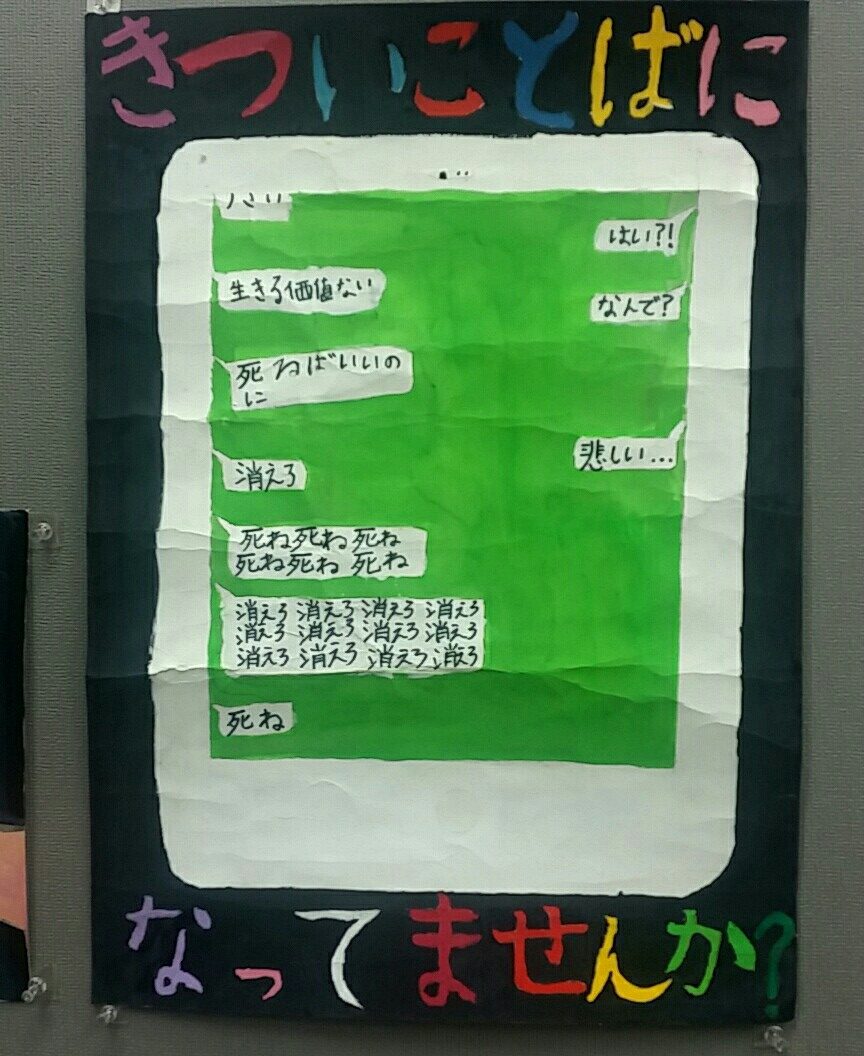 きついことばに
はい?!
生きる価値ない
なんで?
死ねばいいの
に
悲しい...
消えろ
死ね死ね死ね
死ね死ね死ね
消えろ消えろ消えろ消えろ
消えろ消えろ消えろ消えろ
消えろ消えろ消えろ消えろ
死ね
なってませんか?